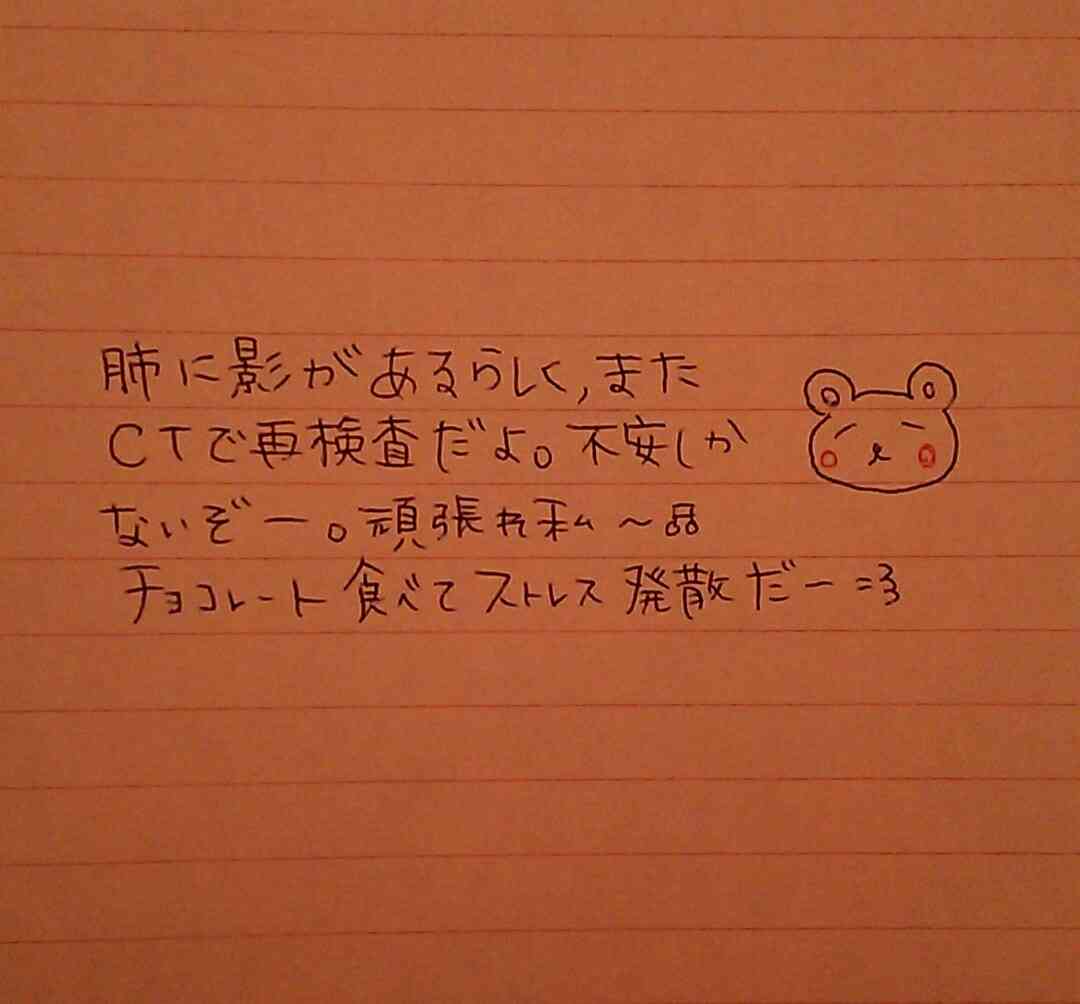 肺に影があるらしく,また
CTで再検査だよ。不安しか
ないぞー。頑張れ私～
チョコレート食べてストレス発散だー=3